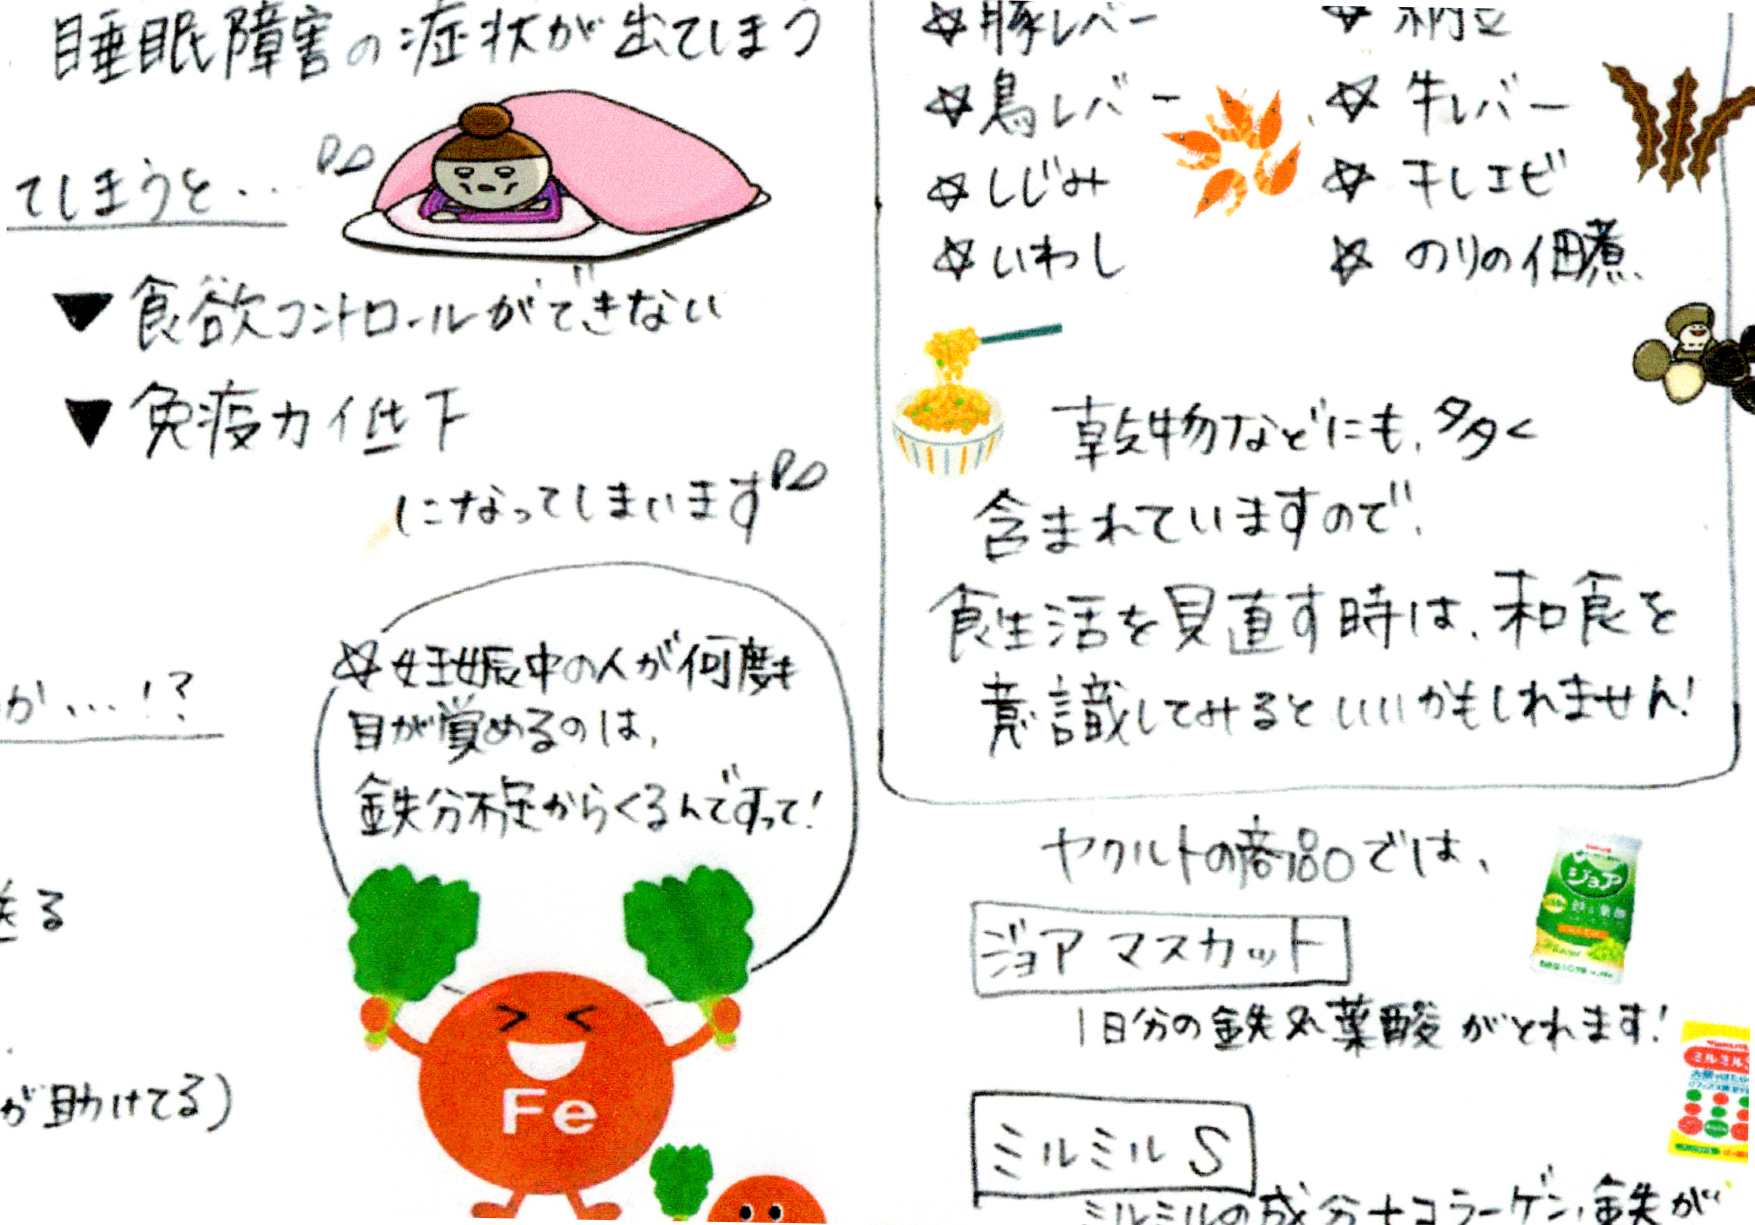 睡眠障害の症状が出てしまう
てしまうと…
▼食欲コントロールができない
▼免疫力低下
になってしまいます
か…!?
☆妊娠中の人が何度も
目が覚めるのは、
鉄分不足からくるんですって!
送る
が助けてる)
Fe
☆豚レバー ☆納豆
☆鳥レバー ☆牛レバー
☆しじみ ☆干しエビ
☆いわし ☆のりの佃煮
乾物などにも、多く
含まれていますので、
食生活を見直す時は、和食を
意識してみるといいかもしれません!
ヤクルトの商品では、
ジョア
ジョア マスカット
1日分の鉄と葉酸がとれます!
ミルミルS
ミルミルS
ミルミルの成分+コラーゲン、鉄が